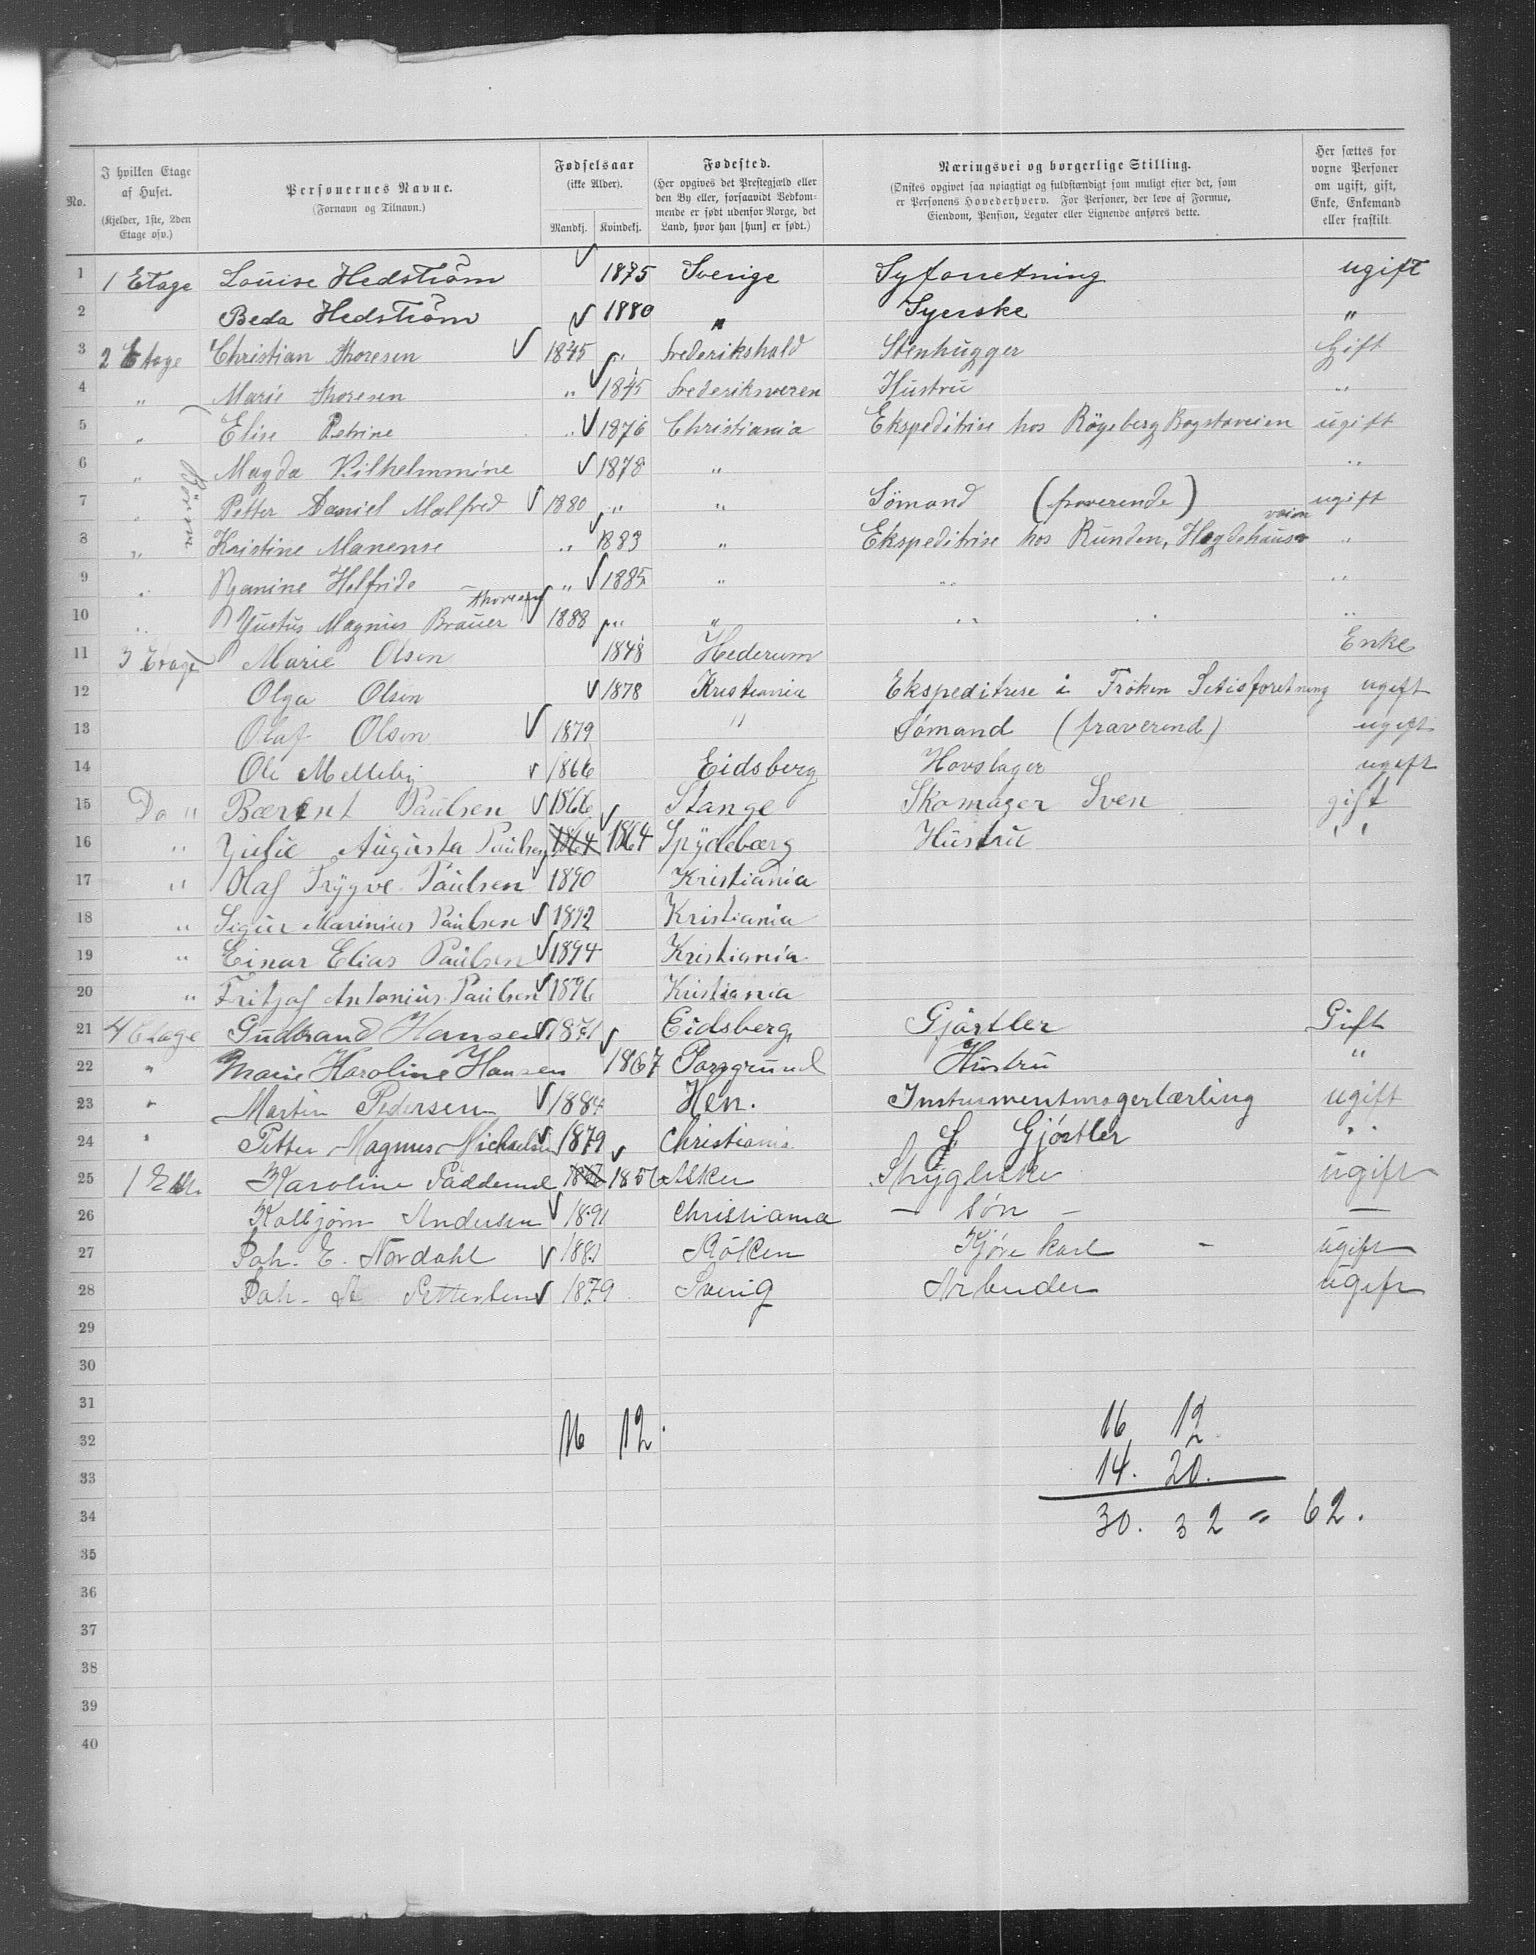 No.
I hvilken Etage af Huset.
(Kjelder, 1ste, 2den Etage osv.)
Personernes Navne.
(Fornavn og Tilnavn.)
Fødselsaar
(ikke Alder).
Mandkj. Kvindekj.
Fødested.
(Her opgives det Prestegjæld eller den By eller, forsaavidt Vedkommende er født udenfor Norge, det Land, hvor han [hun] er født.)
Næringsvei og borgerlige Stilling.
(Ønskes opgivet saa nøiagtigt og fuldstændigt som muligt efter det, som er Personens Hovederhverv. For Personer, der leve af Formue, Eiendom, Pension, Legater eller Lignende anføres dette.
Her sættes for voxne Personer om ugift, gift, Enke, Enkemand eller fraskilt.
1 1 Etage Louise Hedström 1875 Sverige Syforretning ugift
2 Beda Hedström 1880 " Syerske "
3 2 Etage Christian Thoresen 1845 " Frederikshald Stenhugger Gift
4 " Marie Thoresen " 1845 Frederiksværen Hustru "
5 " Elise Petrine " 1876 Christiania Ekspeditrise hos Rögeberg Bogstaveien ugift
6 " Magda Vilhelmmine 1878 " "
Börn
7 " Petter Daniel Malfred 1880 " " Sömand (fraverende) ugift
8 " Kristine Manense " 1883 " Ekspeditrise hos Runden, Hegdehausveien "
9 " Ranine Helfride " 1885 " " "
10 " Justus Magnus Brauer Thoresen 1888 " " " "
11 3 Etage Marie Olsen 1848 Hederum Enke
12 Olga Olsen 1878 Kristiania Ekspeditrise i Fröken Setisforetning ugift
13 Olaf Olsen 1879 " Sømand (fraverend) ugift
14 Ole Melleby 1866 Eidsberg Hovslager ugift
15 Do " Bærent Paulsen 1866 Stange Skomager Sven gift
16 " Julie Augusta Paulsen 1864 1864 Spydebærg Hustru "
17 " Olaf Trygve Paulsen 1890 Kristiania
18 " Sigur Marinius Paulsen 1892 Kristiania
19 " Einar Elias Paulsen 1894 Kristiania
20 " Fritjof Antonius Paulsen 1896 Kristiania
21 4 Etage Gudbrand Hansen 1871 Eidsberg Gjørtler Gift
22 " Marie Karoline Hansen 1867 Porsgrund Hustru "
23 " Martin Pedersen 1884 Hen. Instrumentmagerlærling ugift
24 " Petter Magnus Michaelsen 1879 Christiania Gjörtler "
25 1 Karoline Padderud 1856 Asker Strygeske ugift
26 Kolbjørn Andersen 1891 Christiania – søn – –
27 Joh. E. Nordahl 1881 Röken Kjørekarl - ugift
28 Joh. A Pettersen 1879 Sverig Arbeider ugift
29
30
31
32 16 12. 16 12
33 14. 20.
34 30. 32 = 62.
35
36
37
38
39
40